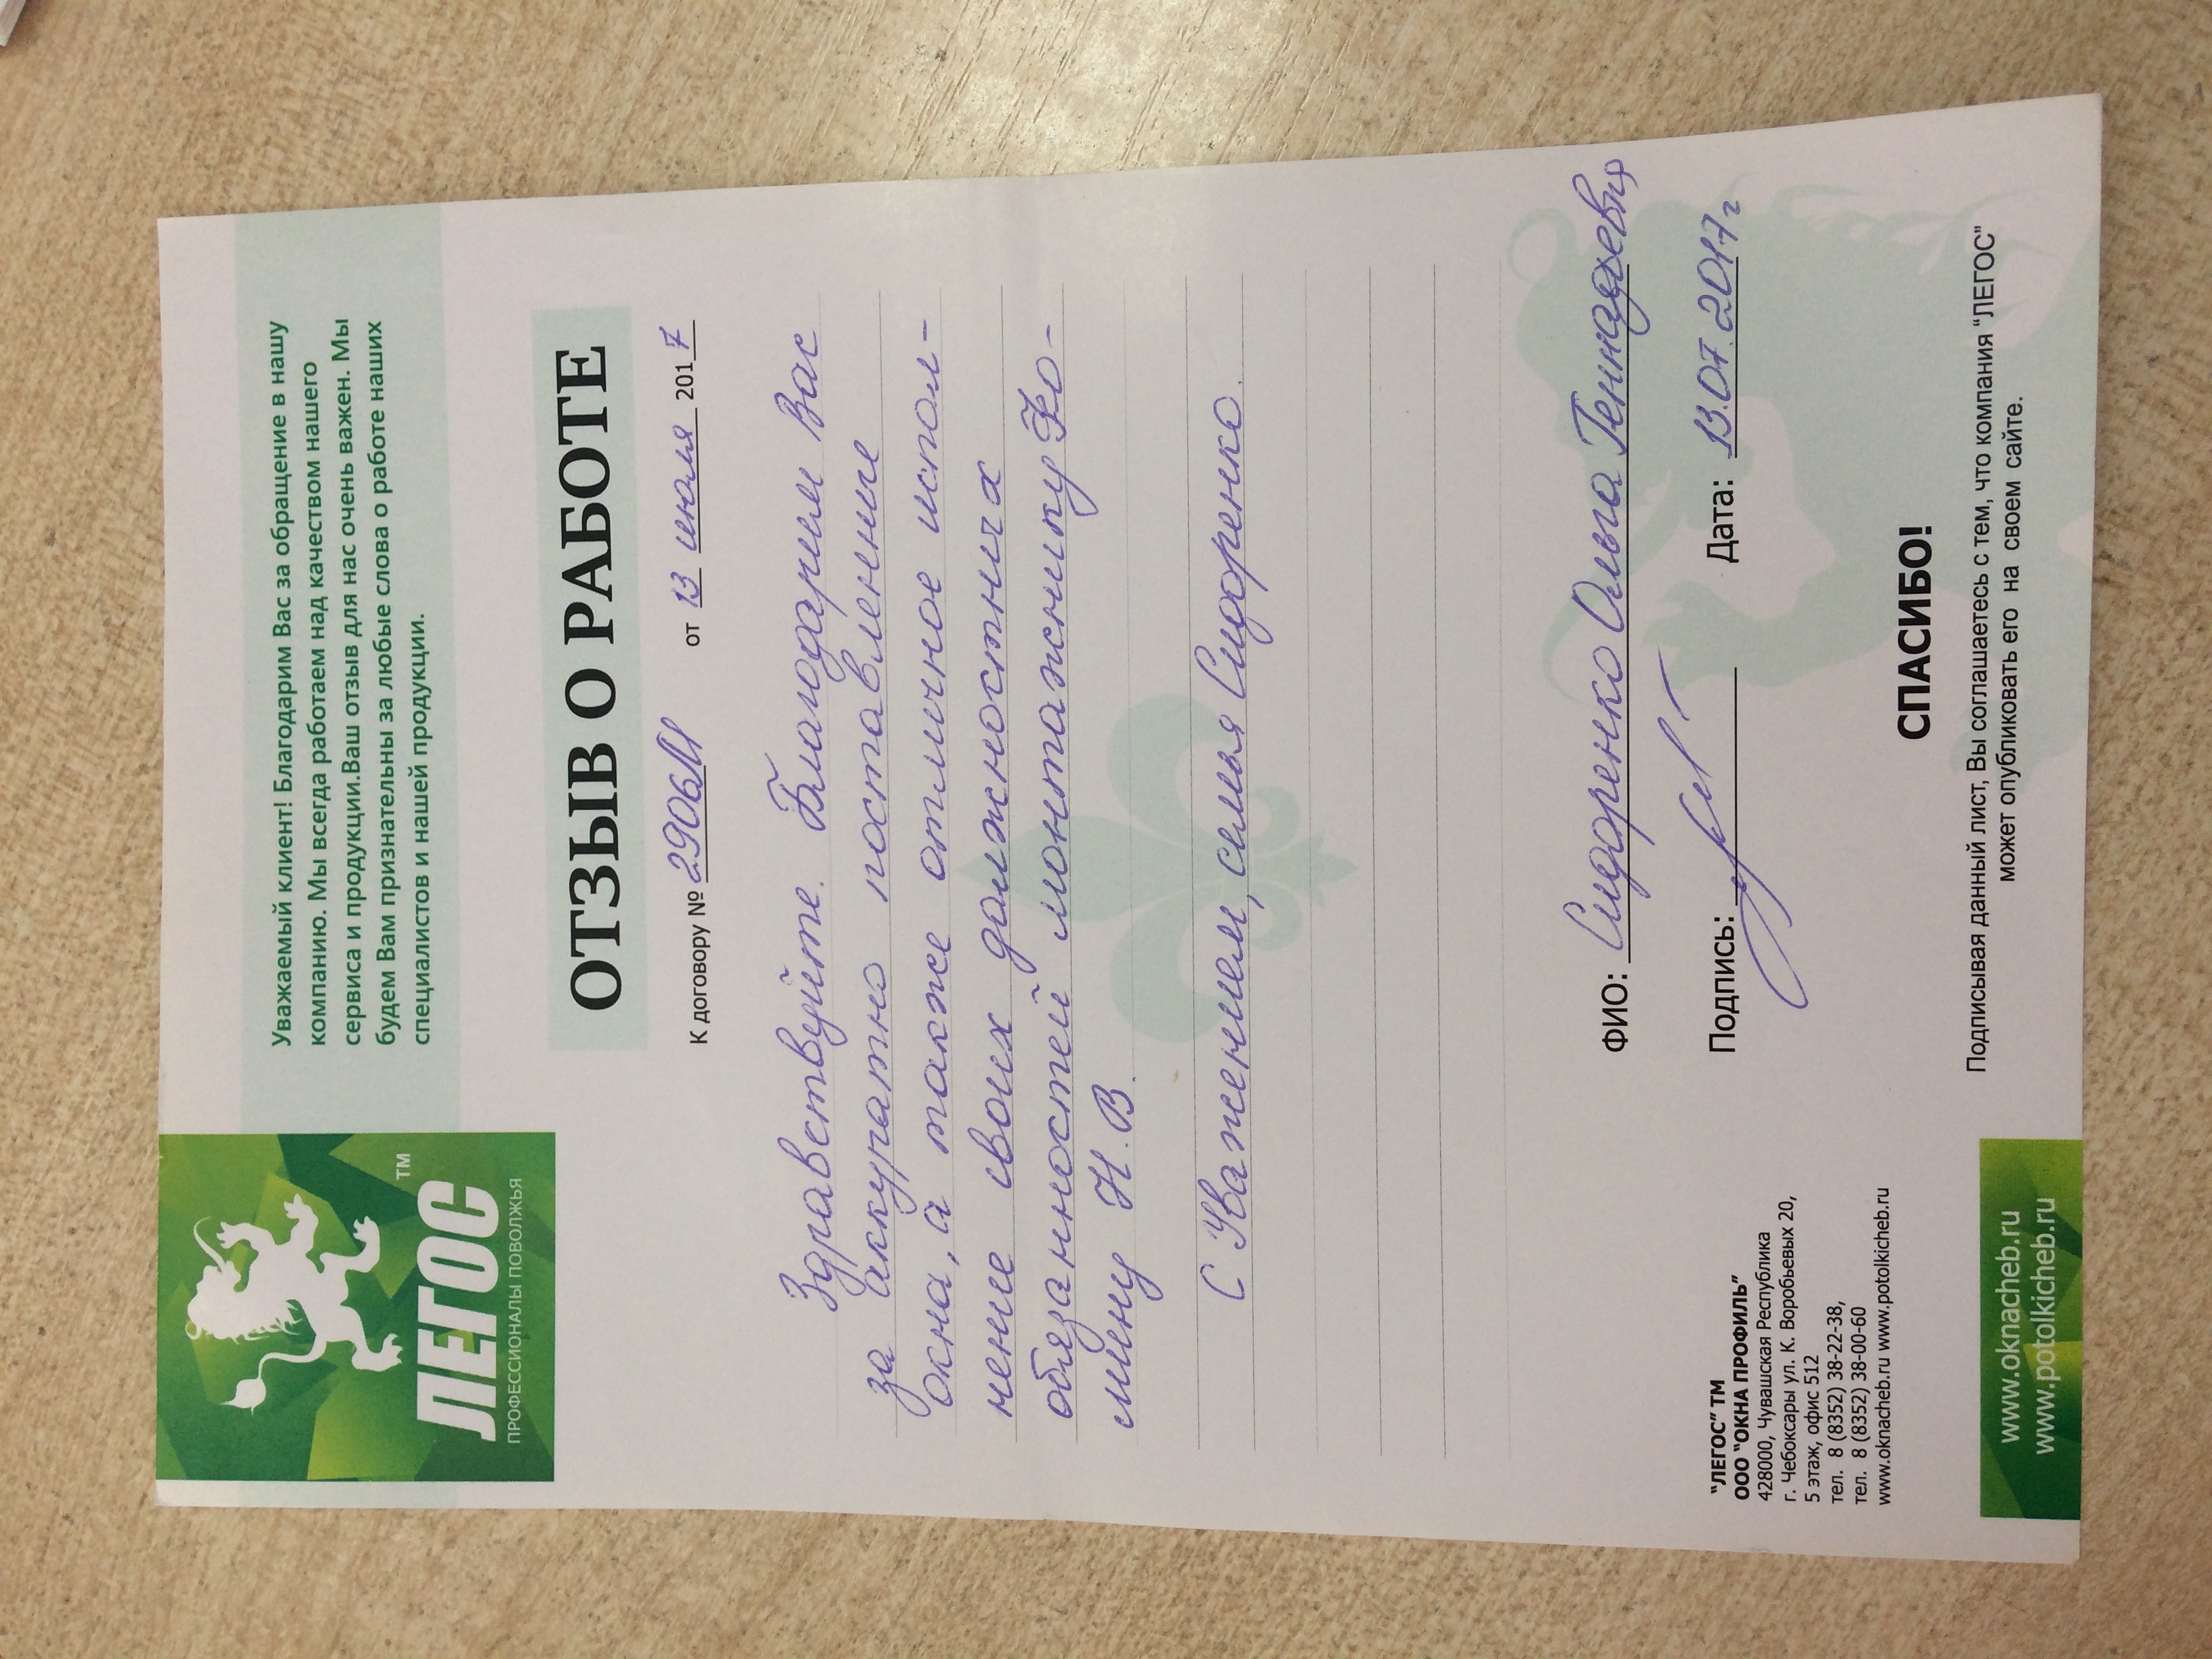 ЛЕГОС ТМ
ПРОФЕССИОНАЛЫ ПОВОЛЖЬЯ
Уважаемый клиент! Благодарим Вас за обращение в нашу
компанию. Мы всегда работаем над качеством нашего
сервиса и продукции.Ваш отзыв для нас очень важен. Мы
будем Вам признательны за любые слова о работе наших
специалистов и нашей продукции.
ОТЗЫВ О РАБОТЕ
К договору № 2906М от 13 июля 2017
Здравствуйте. Благодарим Вас
за аккуратно поставленные
окна, а также отличное испол-
нение своих должностных
обязанностей монтажнику Фо-
мину Н.В.
С Уважением, семья Сидоренко.
ФИО: Сидоренко Ольга Геннадьевна
Подпись: Дата: 13.07.2017г
"ЛЕГОС" ТМ
ООО "ОКНА ПРОФИЛЬ"
428000, Чувашская Республика
г. Чебоксары ул. К. Воробьевых 20,
5 этаж, офис 512
тел. 8 (8352) 38-22-38,
тел. 8 (8352) 38-00-60
www.oknacheb.ru www.potolkicheb.ru
СПАСИБО!
Подписывая данный лист, Вы соглашаетесь с тем, что компания "ЛЕГОС"
может опубликовать его на своем сайте.
www.oknacheb.ru
www.potolkicheb.ru